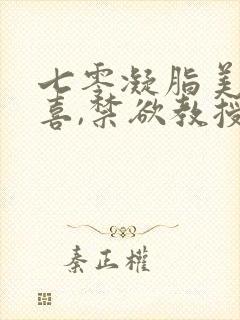 七零凝脂美
喜,禁欲教授
秦正權